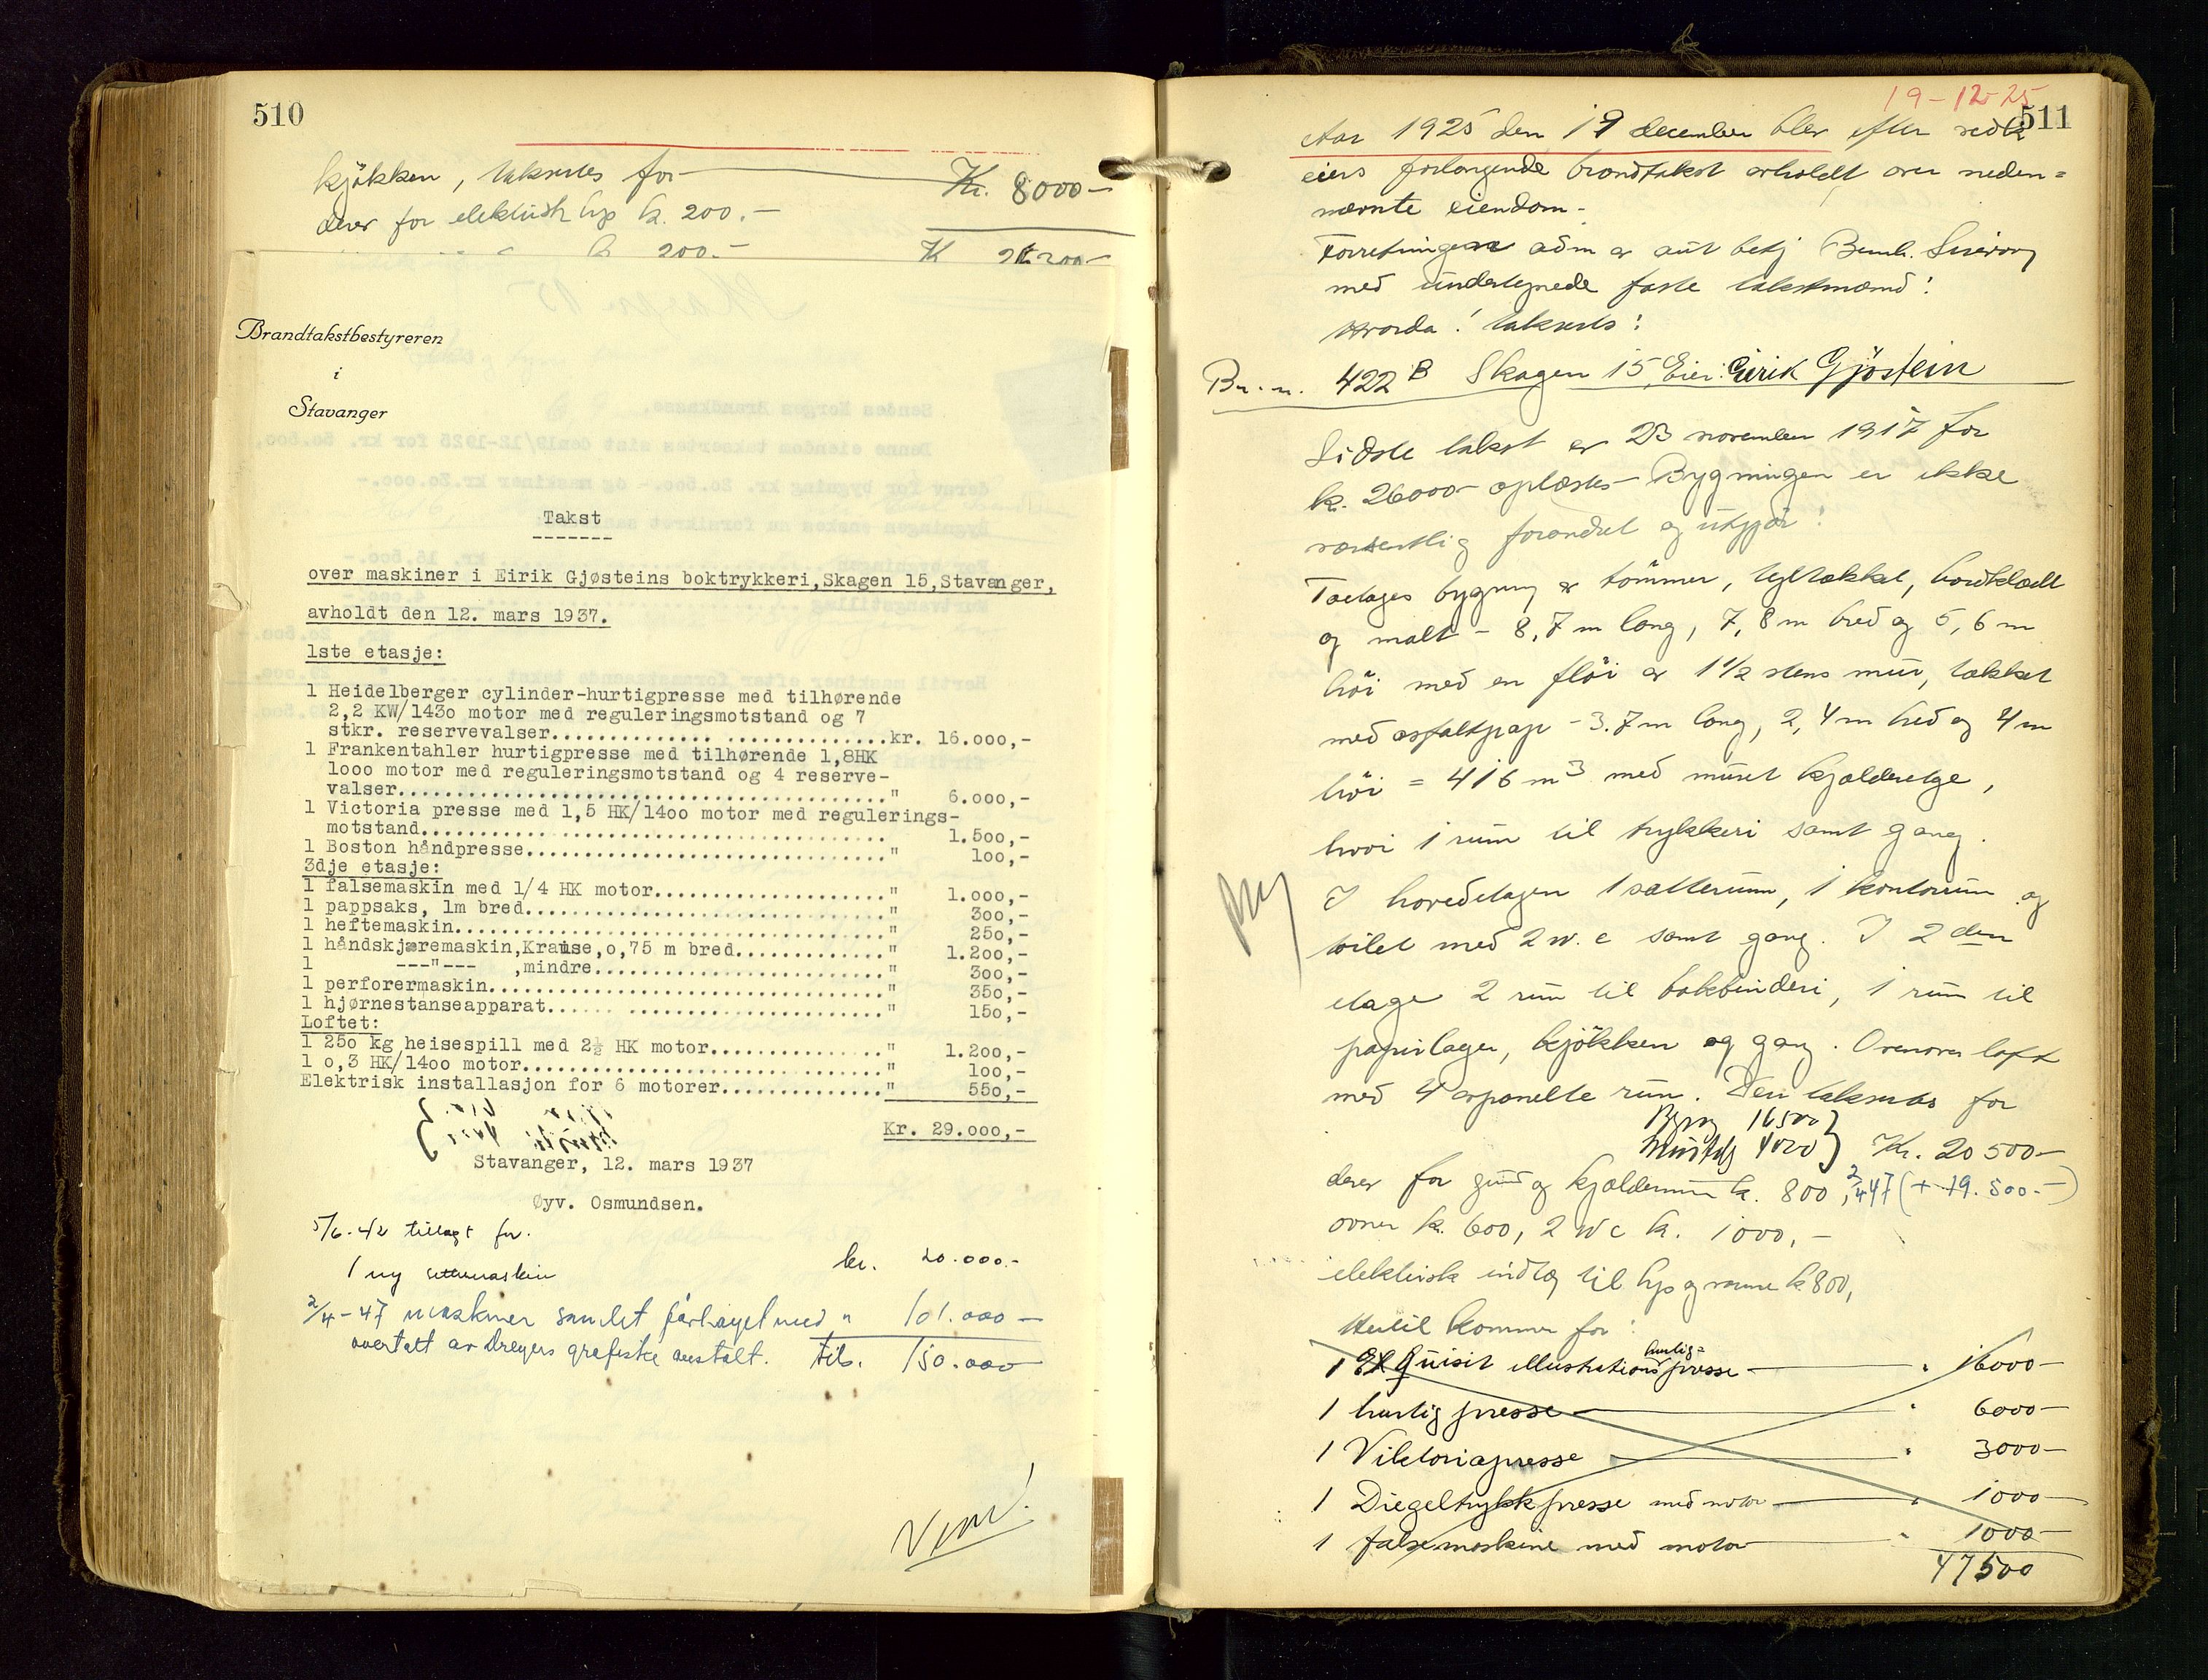 510
kjøkken, takseres for Kr. 8000-
derav for elektrisk lys k. 200.-
200.-
Brandtakstbestyreren
i
Stavanger
Takst
over maskiner i Eirik Gjøsteins boktrykkeri, Skagen 15, Stavanger,
avholdt den 12. mars 1937.
1ste etasje:
1 Heidelberger cylinder-hurtigpresse med tilhørende
2,2 KW/1430 motor med reguleringsmotstand og 7
stkr. reservevalser.............. ..............kr. 16.000,-
1 Frankentahler hurtigpresse med tilhørende 1,8HK
1000 motor med reguleringsmotstand og 4 reserve-
valser.........................................." 6.000,-
1 Victoria presse med 1,5 HK/1400 motor med regulerings-
motstand........................................ 1.500,-
1 Boston håndpresse..............................." 100,-
3dje etasje:
1 falsemaskin med 1/4 HK motor...................." 1.000,-
1 pappsaks, 1m bred..............................." 300,-
1 heftemaskin....................................." 250,-
1 håndskjæremaskin,Krause,0,75 m bred............." 1.200,-
1 ---"--- ,mindre........................" 300,-
1 perforermaskin.................................." 350,-
1 hjørnestanseapparat...... ......................" 150,-
Loftet:
1 250 kg heisespill med 2½ HK motor..............." 1.200,-
1 0,3 HK/1400 motor..............................." 100,-
Elektrisk installasjon for 6 motorer.............." 550,-
Kr. 29.000,-
Stavanger, 12. mars 1937
Øyv. Osmundsen.
5/6-42 tillagt for.
1 ny settemaskin kr. 20.000.-
2/4-47 maskiner samlet forhøyet med " 101.000 -
overtatt av Dreyers grafiske anstalt. tils. 150.000
19-12-25
511
Aar 1925 den 19 december blev efter
eiers forlangende brandtakst avholdt over neden=
nævnte eiendom-
Forretningen adm av aut betj Bernh.
med undertegnede faste takstmænd:
Hvorda! takseres:
Br. n. 422 B Skagen 15 Eier: Eirik Gjøstein
Sidste takst er 23 november 1917 for
k. 26000- oplæstes- Bygningen er ikke
væsentlig forandret og utgjør:
Toetages bygning av tømmer, tegltækket, bordklædt
og malt - 8,7 m lang, 7,8 m bred og 5,6 m
høi med en fløi av 1 1/2 stens mur, tækket
med asfaltpap - 3.7 m lang, 2,4 m bred og 4 m
høi = 416 m3 med muret kjælderetge,
hvori 1 rum til trykkeri samt gang.
I hovedetagen 1 sætterum, 1 kontorrum og
toilet med 2 w.c samt gang. I 2den
etage 2 rum til bokbinderi, 1 rum til
papirlager, kjøkken og gang. Ovenover loft
med 4 avpanelte rum. Den takseres for
Bygn 16500
4000 } Kr. 20 500-
derav for grund og kjælderrum k. 800, 2/4 47 (+ 19.500.-)
ovner k. 600, 2 wc k. 1000,-
elektrisk indlæg til lys og varme k. 800,
Hertil kommer for:
1 Exquisit illustrations hurtig= presse " 16000-
1 hurtig presse " 6000-
1 Viktoriapresse " 3000-
1 Diegeltrykkpresse med motor " 1000-
1 falsemaskine med motor " 1000-
47500